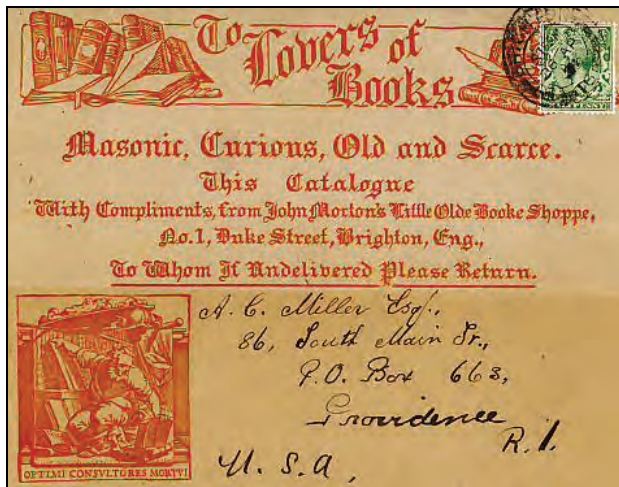 To
Lovers of
Books
Masonic, Curious, Old and Scarce.
This Catalogue
With Compliments, from John Morton's Little Olde Booke Shoppe,
No. 1, Duke Street, Brighton, Eng.,
To Whom If Undelivered Please Return.
A. C. Miller Esq.,
86, South Main Str.,
P.O. Box 663,
Providence
R.I.
U.S.A,
OPTIMI CONSVLTORES MORTVI